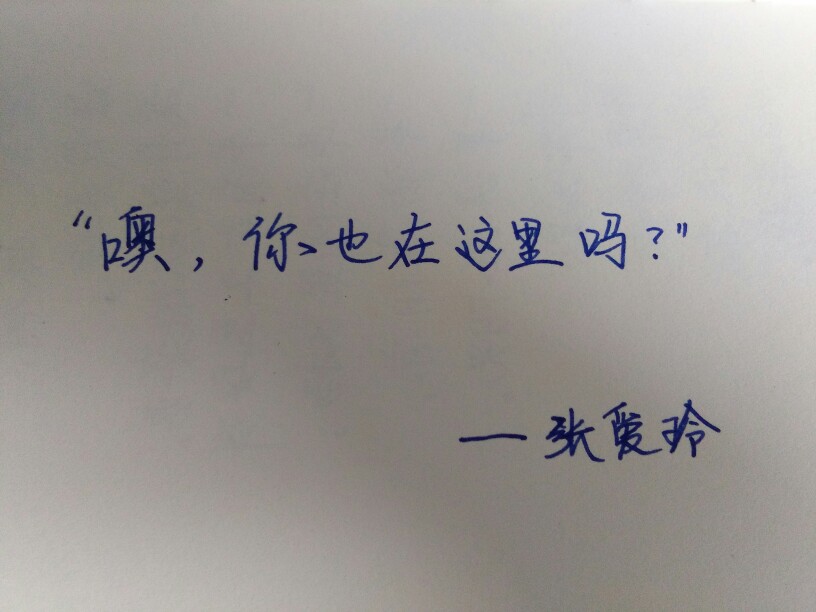 “噢，你也在这里吗？”
— 张爱玲